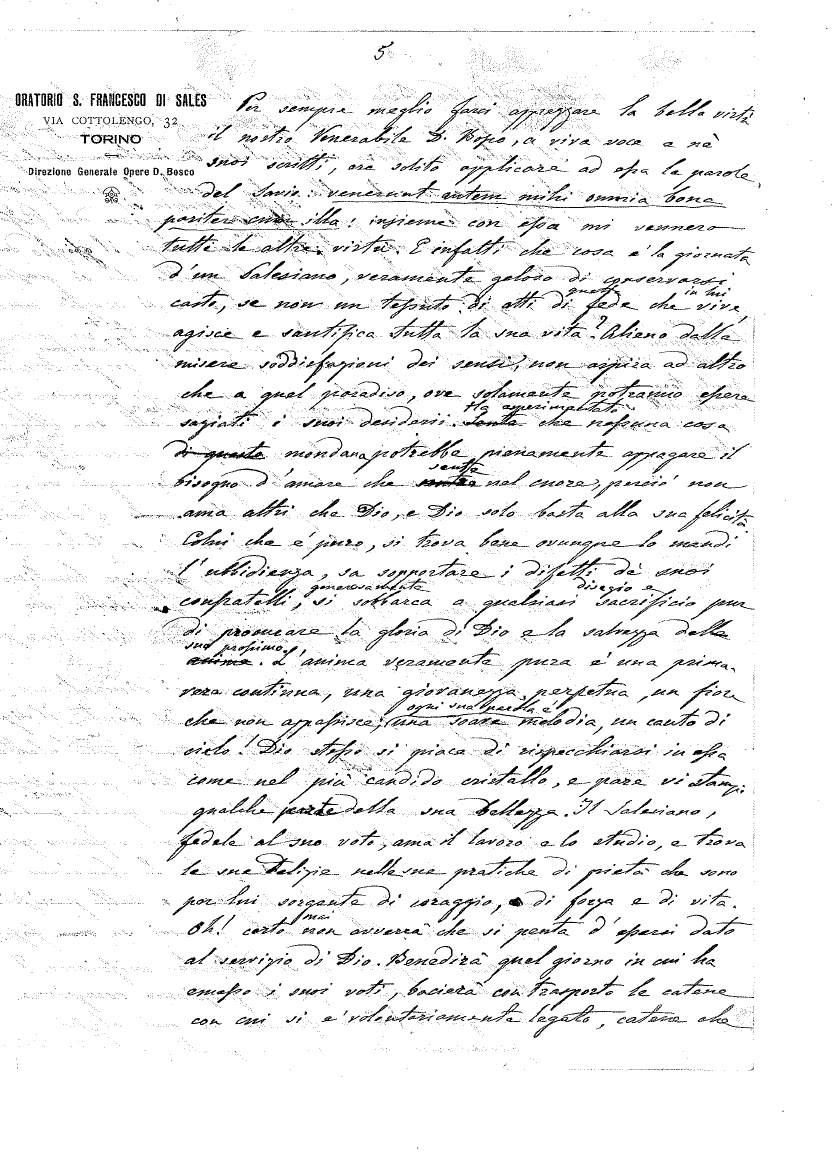 5
ORATORIO S. FRANCESCO DI SALES
VIA COTTOLENGO, 32
TORINO
Direzione Generale Opere D. Bosco
Per sempre meglio farci apprezzare la bella virtù
il nostro Venerabile D. Bosco, a viva voce e nè
suoi scritti, era solito applicare ad essa le parole
del Savio: venerunt autem mihi omnia bona
pariter cum illa: insieme con essa mi vennero
tutte le altre virtù. E infatti che cosa è la giornata
d'un Salesiano, veramente geloso di conservarsi
casto, se non un tessuto di atti di quella fede che in lui vive,
agisce e santifica tutta la sua vita? Alieno dalle
misere soddisfazioni dei sensi, non aspira ad altro
che a quel paradiso, ove solamente potranno essere
saziati i suoi desiderii. Ha sperimentato che nessuna cosa
di questo mondana potrebbe pienamente appagare il
bisogno d'amare che sente nel cuore, perciò non
ama altri che Dio, e Dio solo basta alla sua felicità.
Colui che è puro, si trova bene ovunque lo mandi
l'ubbidienza, sa sopportare i difetti dè suoi
confratelli, generosamente si sobbarca a qualsiasi disagio e sacrificio pur
di procurare la gloria di Dio e la salvezza delle
suo prossimo.
anime. L'anima veramente pura è una prima-
vera continua, una giovanezza perpetua, un fiore
che non appassisce; ogni sua parola è una soave melodia, un canto di
cielo! Dio stesso si piace di rispecchiarsi in essa
come nel più candido cristallo, e pare vi stampi
qualche parte della sua bellezza. Il Salesiano,
fedele al suo voto, ama il lavoro e lo studio, e trova
le sue delizie nelle sue pratiche di pietà che sono
per lui sorgente di coraggio, di forza e di vita.
Oh! certo mai non avverrà che si penta d'essersi dato
al servizio di Dio. Benedirà quel giorno in cui ha
emesso i suoi voti, bacierà con trasporto le catene
con cui si è volontariamente legato, catene che